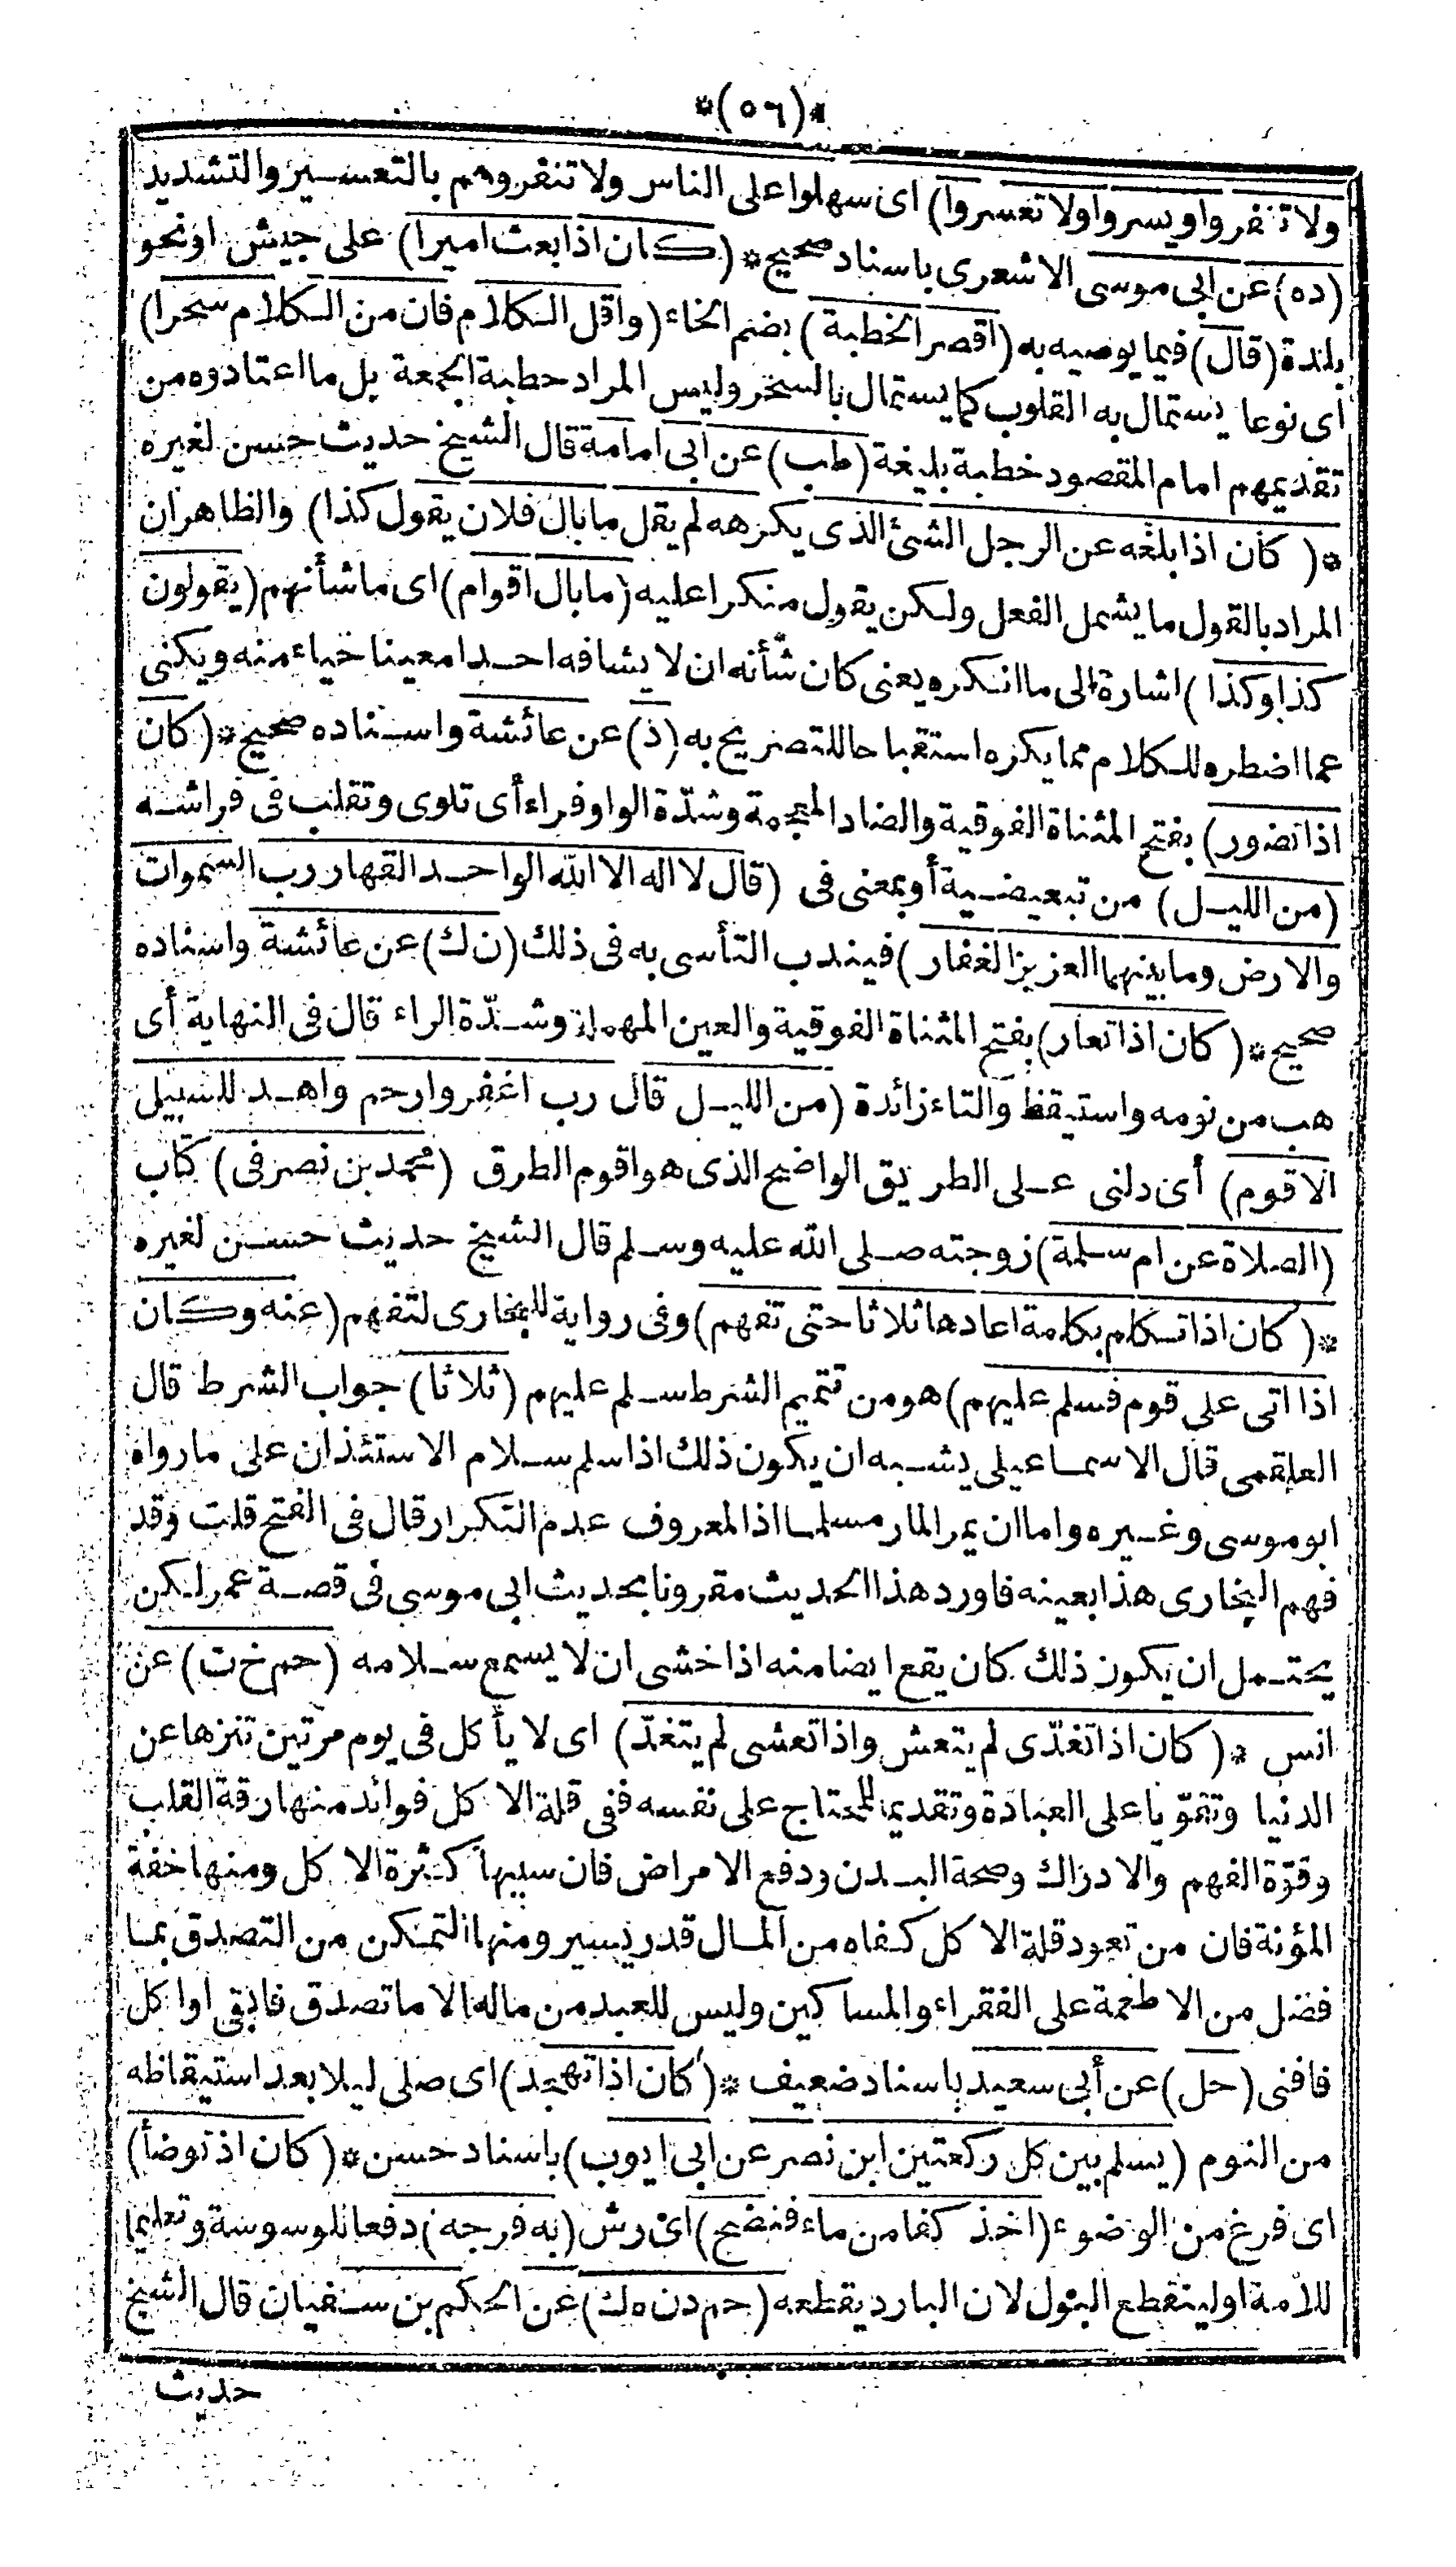 *(٥٦)*
ولا تنفروا ويسروا ولا تعسروا) اى سهلوا على الناس ولا تنفروهم بالتعسير والتشديد
(ده) عن ابى موسى الاشعرى باسناد صحيح * (كان اذا بعث اميرا) على جيش او نحو
بلدة (قال) فيما يوصيه به (اقصر الخطبة) بضم الخاء (واقل الكلام فان من الكلام سحرا)
اى نوعا يستمال به القلوب كما يستمال بالسحر وليس المراد خطبة الجمعة بل ما اعتادوه من
تقديمهم امام المقصود خطبة بليغة (طب) عن ابى امامة قال الشيخ حديث حسن لغيره
* (كان اذا بلغه عن الرجل الشئ الذى يكرهه لم يقل ما بال فلان يقول كذا) والظاهر ان
المراد بالقول ما يشمل الفعل ولكن يقول منكرا عليه (ما بال اقوام) اى ما شأنهم (يقولون
كذا وكذا) اشارة الى ما انكره يعنى كان شأنه ان لا يشافه احدا معينا حياء منه ويكنى
عما اضطره للكلام مما يكره استقباحا للتصريح به (د) عن عائشة واسناده صحيح * (كان
اذا تضور) بفتح المثناة الفوقية والضاد المعجمة وشدّة الواو فراء أى تلوى وتقلب فى فراشه
(من الليل) من تبعيضية أو بمعنى فى (قال لا اله الا الله الواحد القهار رب السموات
والارض وما بينهما العزيز الغفار) فيندب التأسى به فى ذلك (ن ك) عن عائشة واسناده
صحيح * (كان اذا تعار) بفتح المثناة الفوقية والعين المهملة وشدّة الراء قال فى النهاية أى
هب من نومه واستيقظ والتاء زائدة (من الليل قال رب اغفر وارحم واهد للسبيل
الاقوم) أى دلنى على الطريق الواضح الذى هو اقوم الطرق (محمد بن نصر فى) كتاب
(الصلاة عن ام سلمة) زوجته صلى الله عليه وسلم قال الشيخ حديث حسن لغيره
* (كان اذا تكلم بكلمة اعادها ثلاثا حتى تفهم) وفى رواية للبخارى لتفهم (عنه وكان
اذا اتى على قوم فسلم عليهم) هو من تتميم الشرط سلم عليهم (ثلاثا) جواب الشرط قال
العلقمى قال الاسماعيلى يشبه ان يكون ذلك اذا سلم سلام الاستئذان على ما رواه
ابو موسى وغيره واما ان يمر المار مسلما اذ المعروف عدم التكرار قال فى الفتح قلت وقد
فهم البخارى هذا بعينه فاورد هذا الحديث مقرونا بحديث ابى موسى فى قصة عمر لكن
يحتمل ان يكون ذلك كان يقع ايضا منه اذا خشى ان لا يسمع سلامه (حم خ ت) عن
انس * (كان اذا تغدّى لم يتعش واذا تعشى لم يتغدّ) اى لا يأكل فى يوم مرّتين تنزها عن
الدنيا وتقوّيا على العبادة وتقديما للمحتاج على نفسه ففى قلة الاكل فوائد منها رقة القلب
وقوّة الفهم والادراك وصحة البدن ودفع الامراض فان سببها كثرة الاكل ومنها خفة
المؤنة فان من تعود قلة الاكل كفاه من المال قدر يسير ومنها التمكن من التصدق بما
فضل من الاطعمة على الفقراء والمساكين وليس للعبد من ماله الا ما تصدق فابقى او اكل
فافنى (حل) عن أبى سعيد باسناد ضعيف * (كان اذا تهجد) اى صلى ليلا بعد استيقاظه
من النوم (يسلم بين كل ركعتين ابن نصر عن ابى ايوب) باسناد حسن * (كان اذ توضأ)
اى فرغ من الوضوء (اخذ كفا من ماء فنضح) اى رش (به فرجه) دفعا للوسوسة وتعليما
للامة او لينقطع البول لان البارد يقطعه (حم د ن ه ك) عن الحكم بن سفيان قال الشيخ
حديث